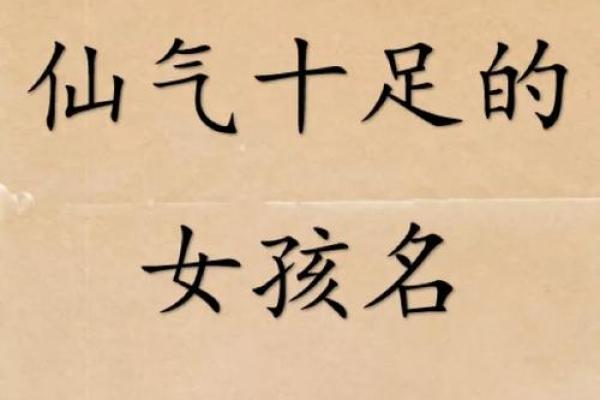 仙气十足的
女孩名